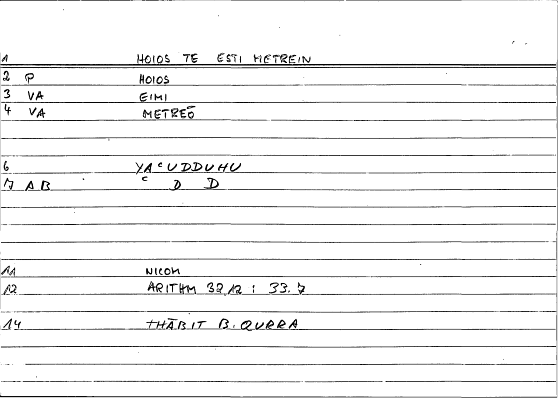 1 HOIOS TE ESTI METREIN
2 P HOIOS
3 VA EIMI
4 VA METREŌ
6 YAᶜUDDUHU
17 AB ᶜ D D
11 NICOM
12 ARITHM 32,12 : 33.7
14 THĀBIT B. QURRA